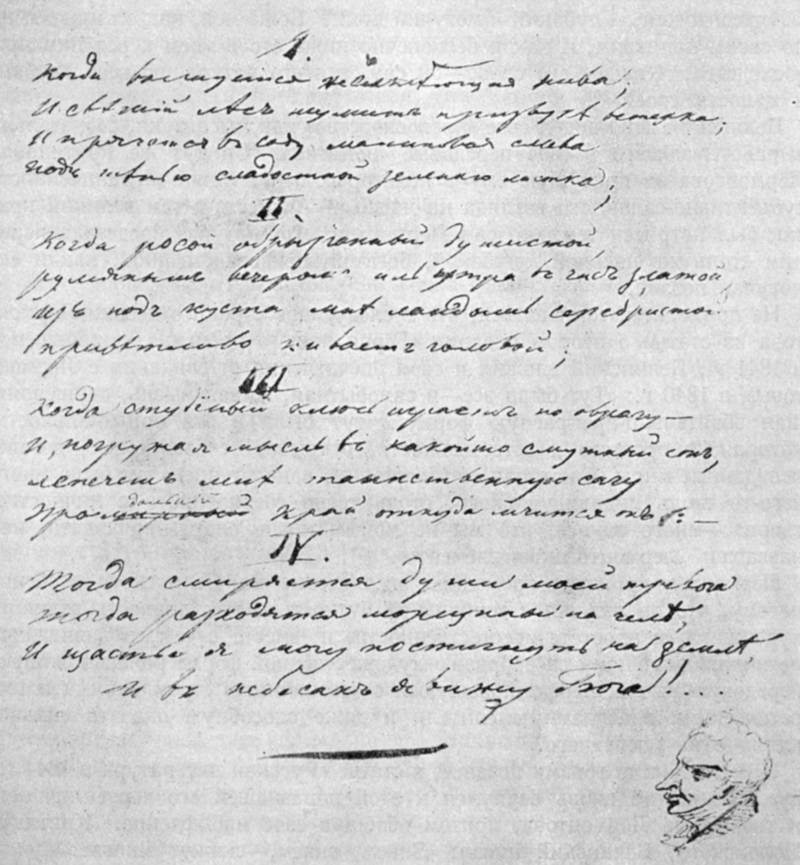 I.
Когда волнуется желтѣющая нива,
И свѣжій лѣсъ шумитъ при звукѣ вѣтерка,
И прячется въ саду малиновая слива
подъ тѣнью сладостной зеленаго листка;
II.
Когда росой обрызганный душистой
румянымъ вечеромъ иль утра въ часъ златой
изъ подъ куста мнѣ ландышъ серебристой
привѣтливо киваетъ головой.
III
Когда студеный ключь играетъ по оврагу —
И, погружая мысль въ какойто смутный сонъ,
лепечетъ мнѣ таинственную сагу
про мирный край откуда мчится онъ. —
IV.
Тогда смиряется души моей тревога
тогда расходятся морщины на челѣ,
И щастье я могу постигнуть на землѣ,
И въ небесахъ я вижу Бога!